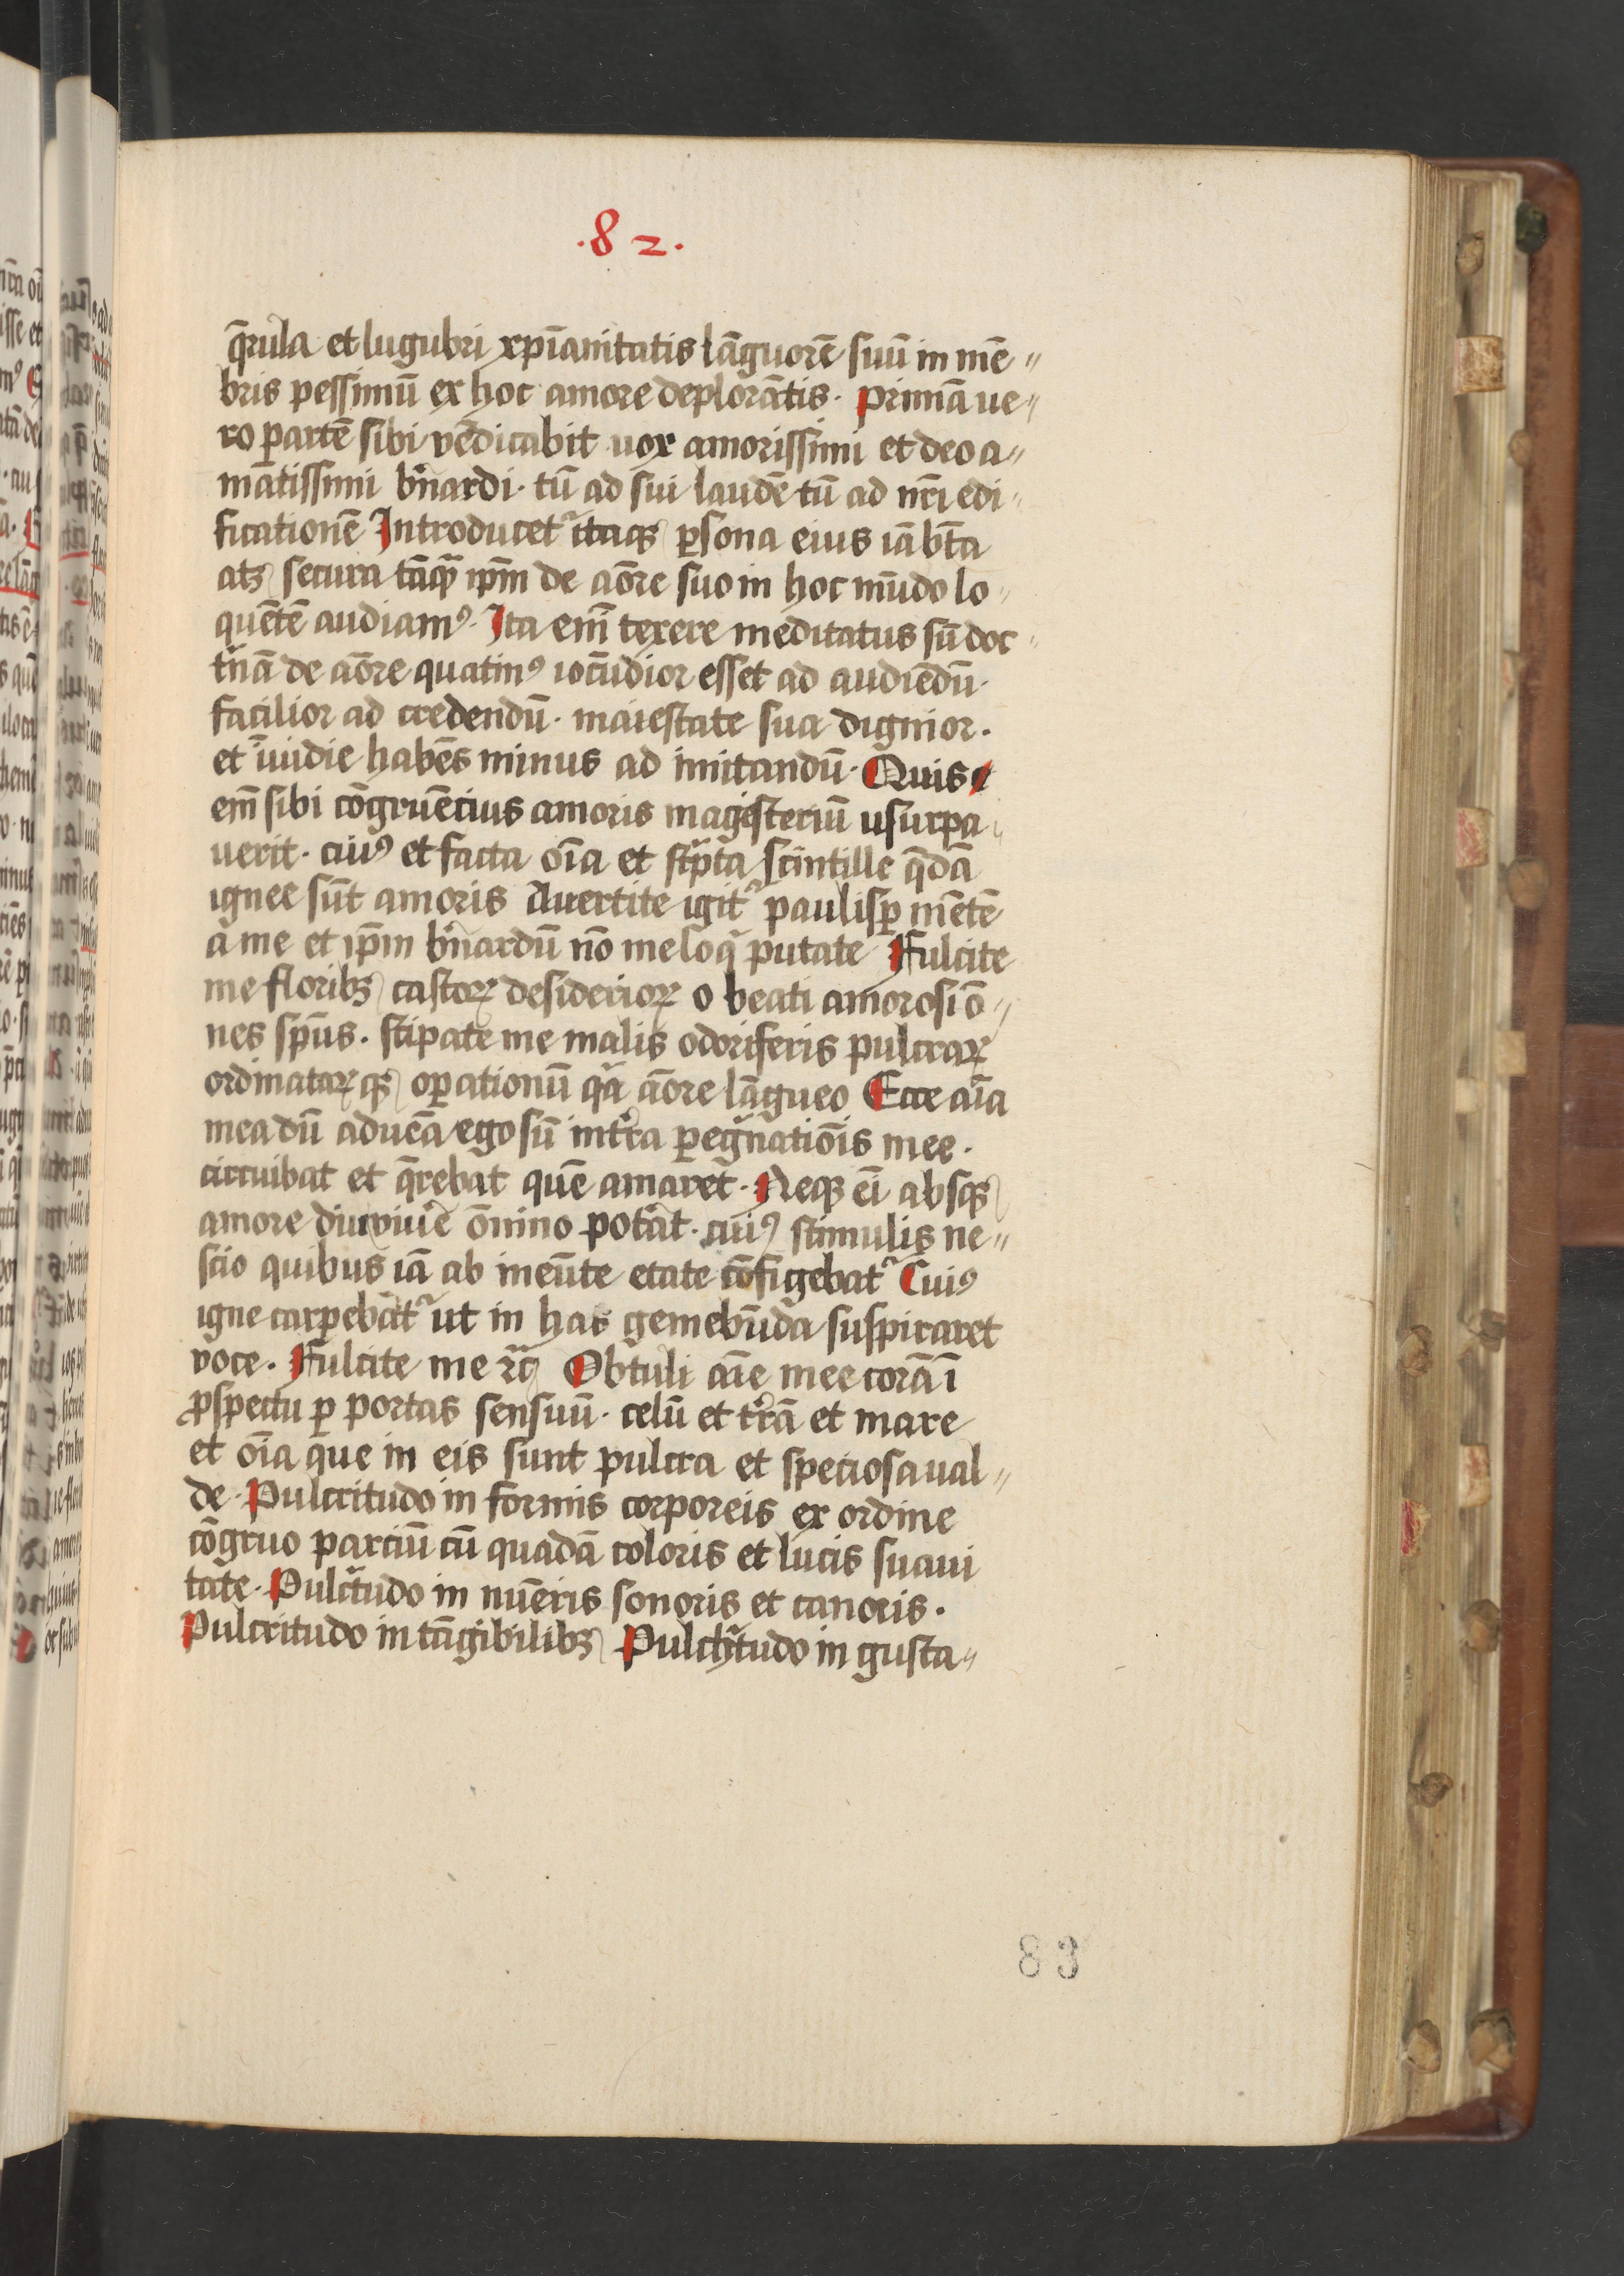 .82.
q̄rula et lugubri xp̄ianitatis lāguorē suū in mē〃
bris pessimū ex hoc amore deplorātis. Primā ue〃
ro ꝑartē sibi vēdicabit uox amorissimi et deo a〃
matissimi bn̄ardi. tū ad sui laudē tū ad nr̄i edi〃
ficationē Introducet᷑ itaqꝫ ꝑsona eius iā bt̄a
atꝫ secura tāqꝫ ip̄m de aōre suo in hoc mūdo lo〃
quētē audiamꝰ. Ita em̄ texere meditatus sū doc〃
tⁱnā de aōre quatinꝰ iocūdior esset ad audiēdū.
facilior ad credendū. maiestate sua dignior.
et īuidie habēs minus ad imitandū. Quis
em̄ sibi cōgruētius amoris magisteriū usurpa〃
uerit. cuiꝰ et facta oīa et sc̄pta scintille q̄dā
ignee sūt amoris Auertite igit᷑ paulisꝑ mētē
a me et ip̄m bn̄ardū nō me loqⁱ putate Fulcite
me floribꝫ castoꝝ desiderioꝝ o beati amorosi ō〃
nes sp̄us. stipate me malis odoriferis pulcraꝝ
ordinataꝝqꝫ oꝑationū qᵃ aōre lāgueo Ecce aīa
mea dū aduēa ego sū in tr̄a ꝑegⁱnatiōis mee.
circuibat et q̄rebat quē amaret. Neqꝫ ei absqꝫ
amore diu viue᷑ ōnino pot᷑at. cuiꝰ stimulis ne〃
scio quibus iā ab ineūte etate cōfigebat᷑ Cuiꝰ
igne carpebat᷑ ut in hac gemebūda suspiraret
voce. Fulcite me ꝛcꝭ Obtuli aīe mee corā ī
ꝓspectu ꝑ portas sensuū. celū et tr̄ā et mare
et oīa que in eis sunt pulcra et speciosa ual〃
de. Pulcritudo in formis corporeis ex ordine
cōgruo parciū cū quadā coloris et lucis suaui
tate. Pulcⁱtudo in nūeris sonoris et canoris.
Pulcritudo in tāgibilibꝫ Pulchⁱtudo in gusta〃
83